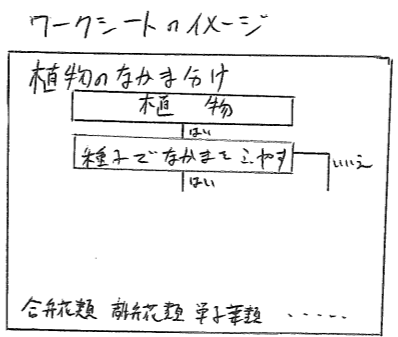 ワークシートのイメージ
植物のなかま分け
植物
はい
種子でなかまをふやす
いいえ
はい
合弁花類 離弁花類 単子葉類 ・・・・・